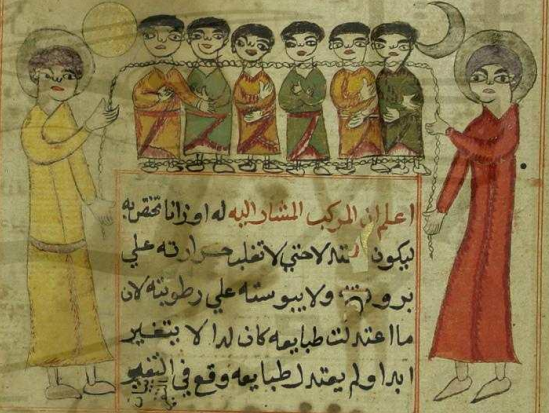 اعلم ان المركب المشار اليه له اوزانا تختص به
ليكون معتدلا حتى لا تغلب حرارته على
برودته ولا يبوسته على رطوبته لان
ما اعتدلت طبايعه كان لدا لا يتغير
ابدا ولم يعتدل طبايعه وقع في التغير